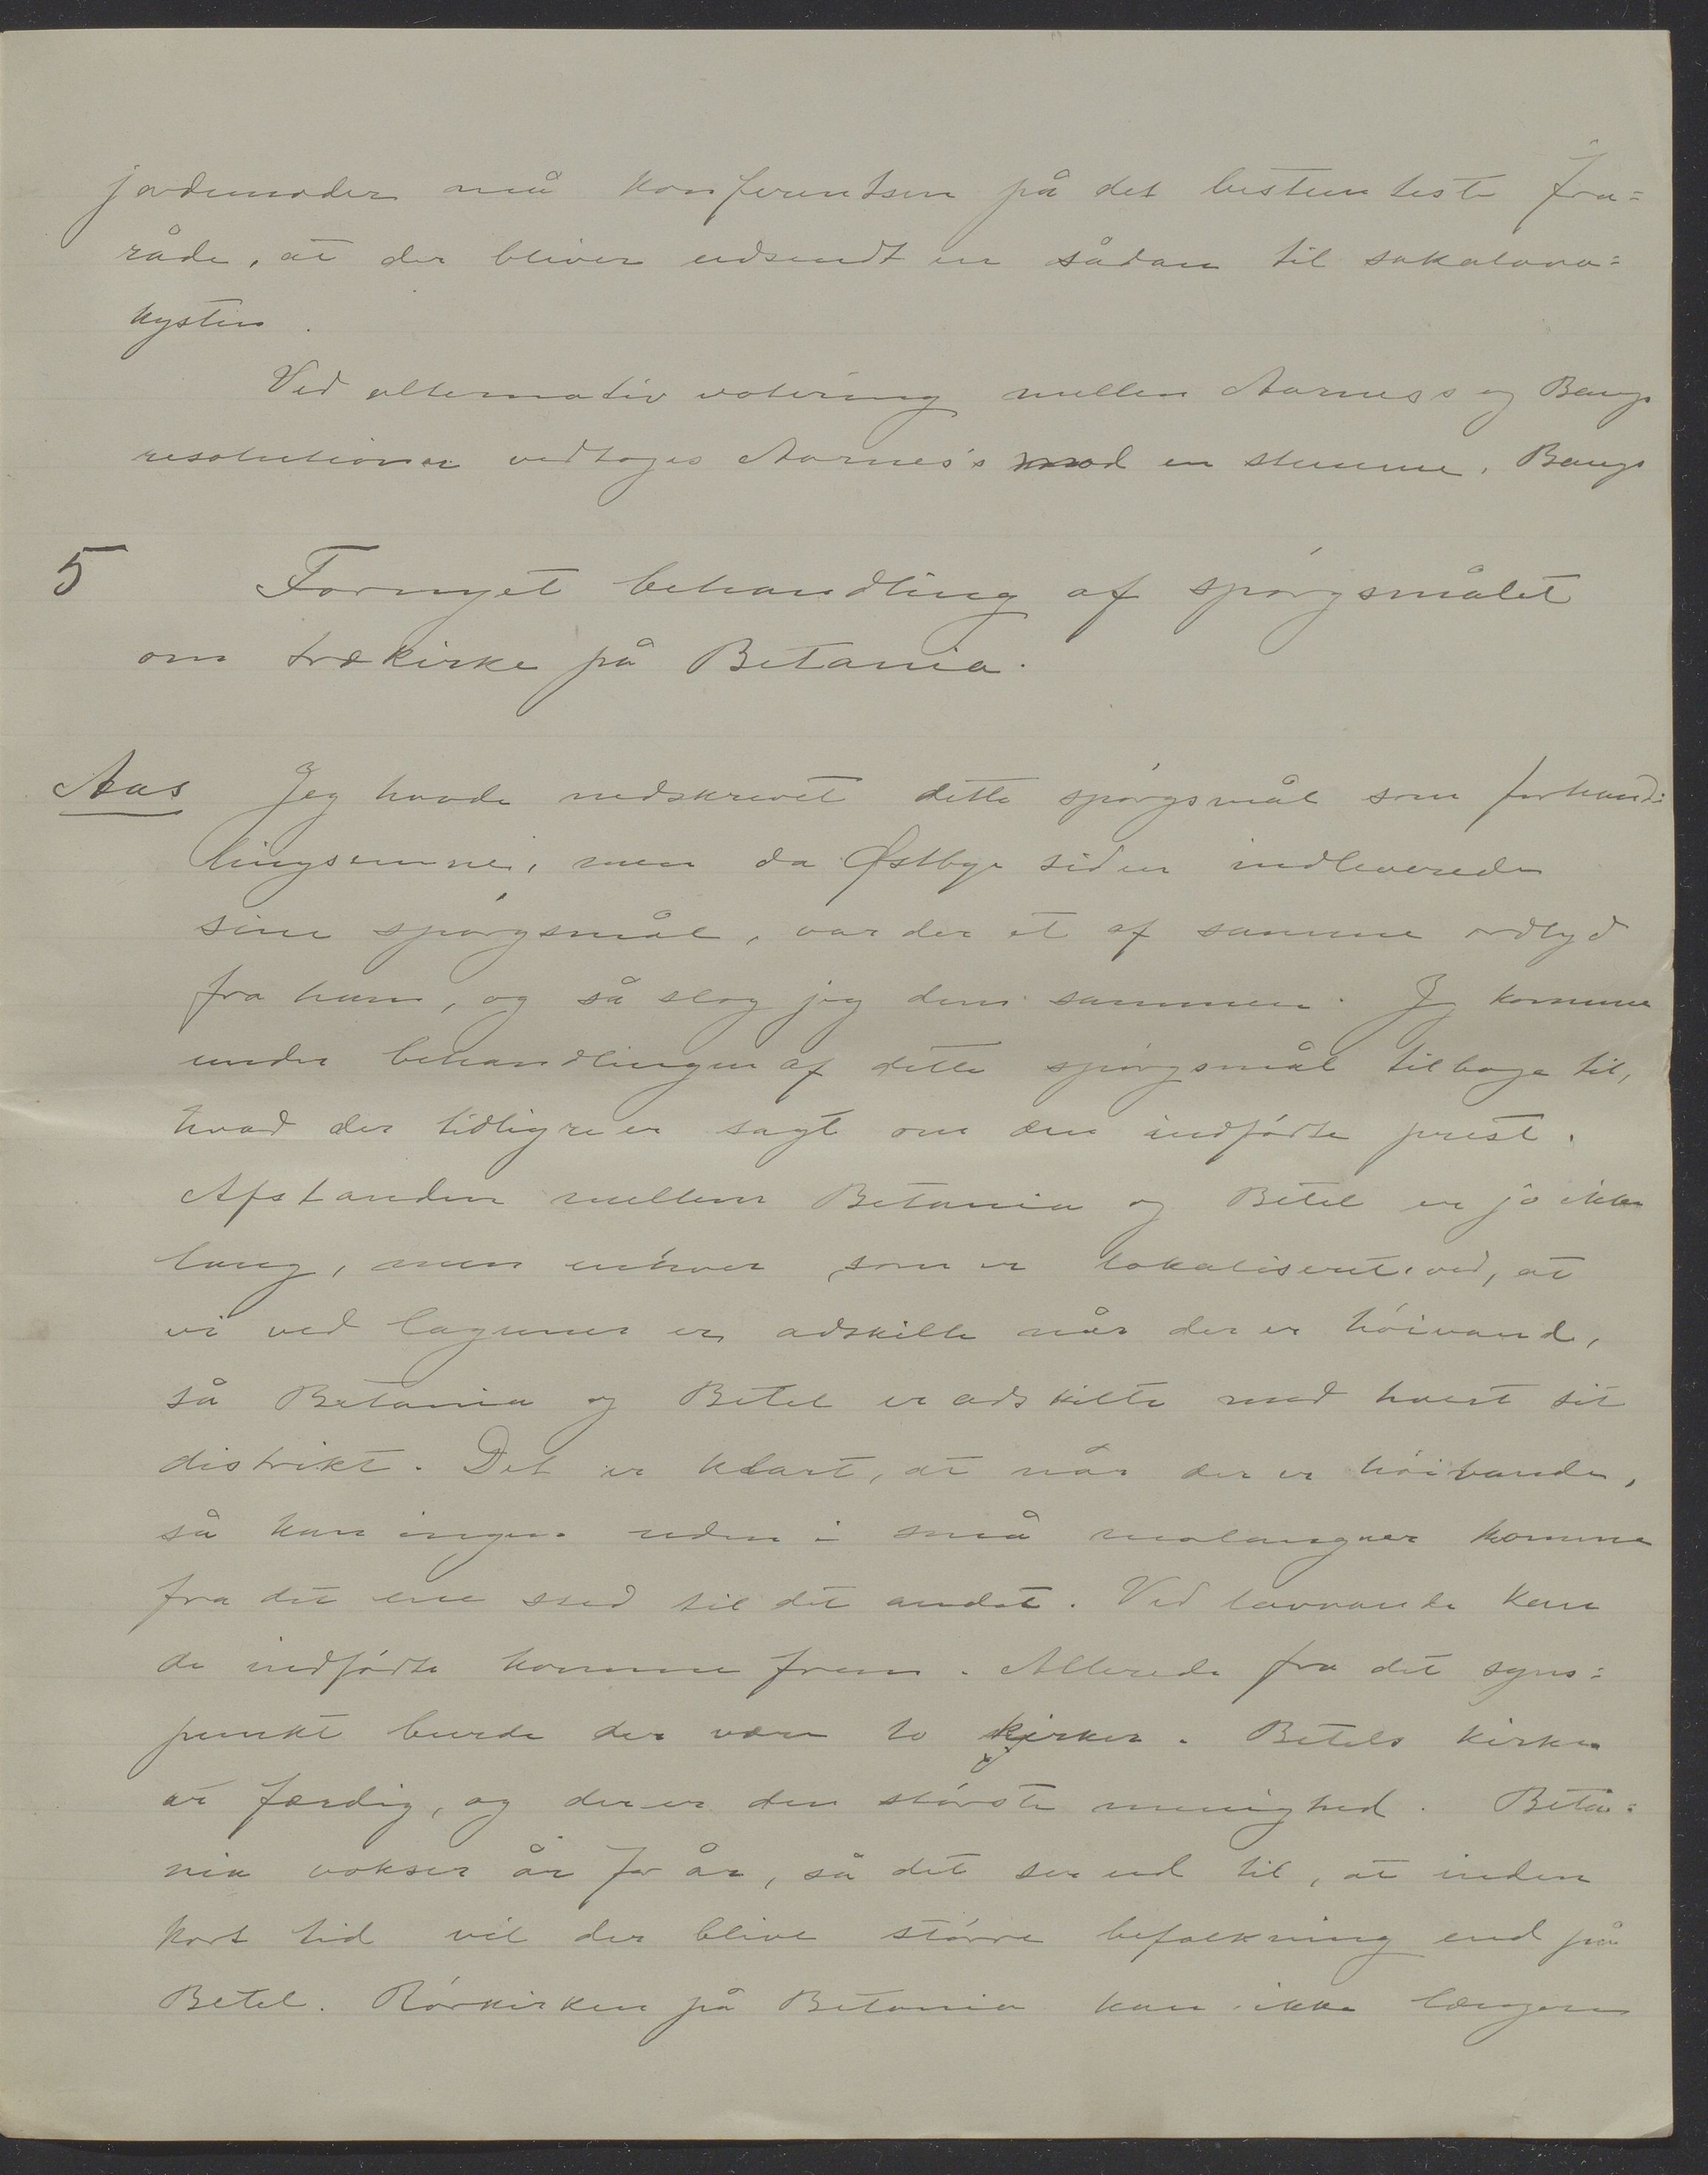 jordemoder må konferentsen på det bestemteste fra=
råde, at der bliver udsendt en sådan til sakalava=
kysten.
Ved alternativ votering mellem Aarnes's og Bangs
resolutioner vedtoges Aarnes's mod en stemme, Bangs
5 Fornyet behandling af spørgsmålet
om trækirke på Betania.
Aas Jeg havde nedskrevet dette spørgsmål som forhand=
lingsemne, men da Østbye siden indleverede
sine spørgsmål, var der et af samme ordlyd
fra ham, og så slog jeg dem sammen. Jeg kommer
under behandlingen af dette spørgsmål tilbage til,
hvad der tidligere er sagt om den indfødte prest.
Afstanden mellem Betania og Betel er jo ikke
lang, men enhver, som er lokaliseret, ved, at
vi ved lagunen er adskilte når der er høivand,
så Betania og Betel er adskilte med hvert sit
distrikt. Det er klart, at når der er høivande,
så kan ingen uden i små molanguer komme
fra det ene sted til det andet. Ved lavvande kan
de indfødte komme frem. Allerede fra det syns=
punkt burde der være to kirker. Betels kirke
er færdig, og der er den største menighed. Beta=
nia vokser år for år, så det ser ud til, at inden
kort tid vil der blive større befolkning end på
Betel. Rørkirken på Betania kan ikke længere